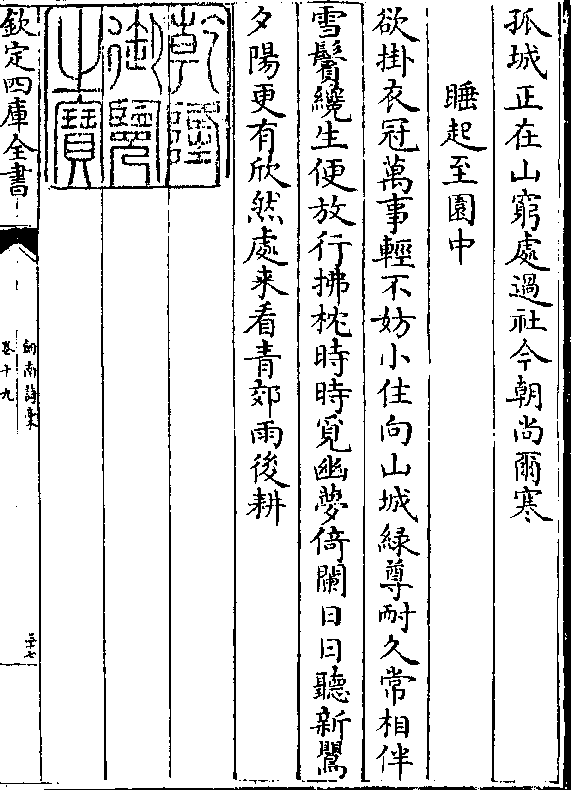 孤城正在山窮處過社今朝尚爾寒
睡起至園中
欲掛衣冠萬事輕不妨小住向山城綠尊耐久常相伴
雪鬢纔生便放行拂枕時時覓幽夢倚闌日日聽新鶯
夕陽更有欣然處来看青郊雨後耕
乾隆
御覽
之寳
欽定四庫全書
劍南詩稾
卷十九
三十七